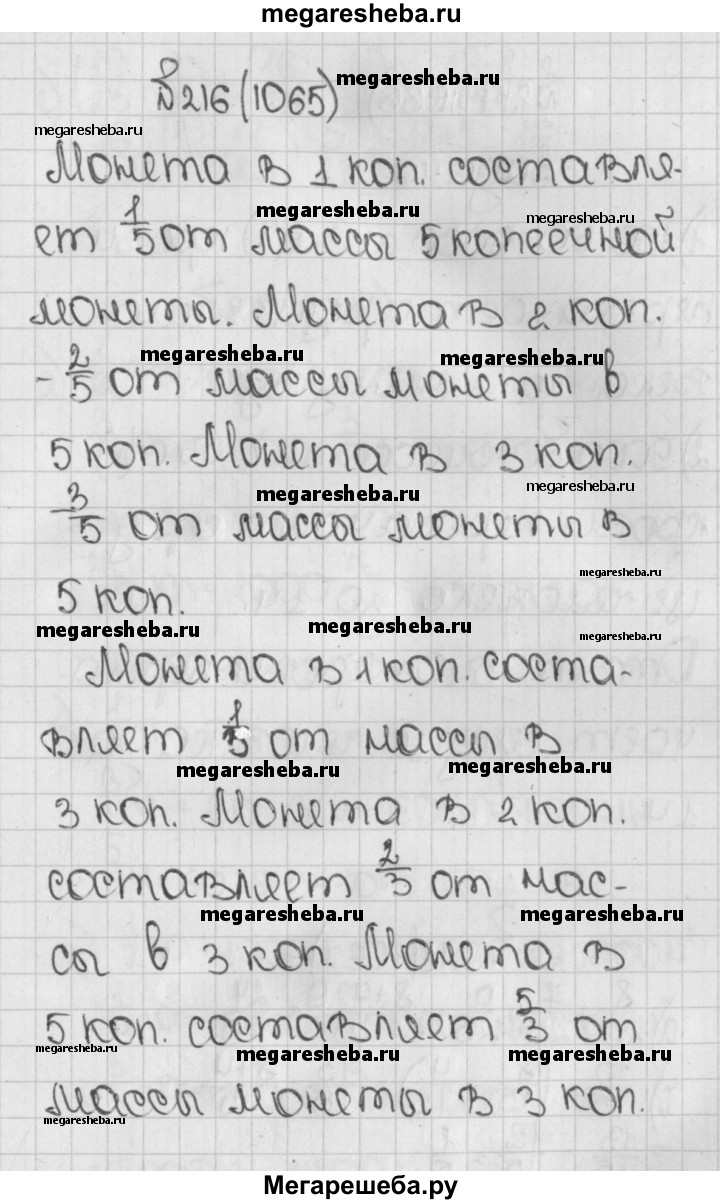 megaresheba.ru
№216 (1065) megaresheba.ru
megaresheba.ru
Монета в 1 коп. составля-
megaresheba.ru megaresheba.ru
ет 1/5 от массы 5 копеечной
монеты. Монета в 2 коп.
megaresheba.ru megaresheba.ru
- 2/5 от массы монеты в
5 коп. Монета в 3 коп.
megaresheba.ru megaresheba.ru
- 3/5 от массы монеты в
megaresheba.ru
5 коп.
megaresheba.ru megaresheba.ru megaresheba.ru
Монета в 1 коп. соста-
вляет 1/5 от массы в
megaresheba.ru megaresheba.ru
3 коп. Монета в 2 коп.
составляет 2/3 от мас-
megaresheba.ru megaresheba.ru
сы в 3 коп. Монета в
5 коп. составляет 5/3 от
megaresheba.ru megaresheba.ru megaresheba.ru
массы монеты в 3 коп.
megaresheba.ru
Мегарешеба.ру